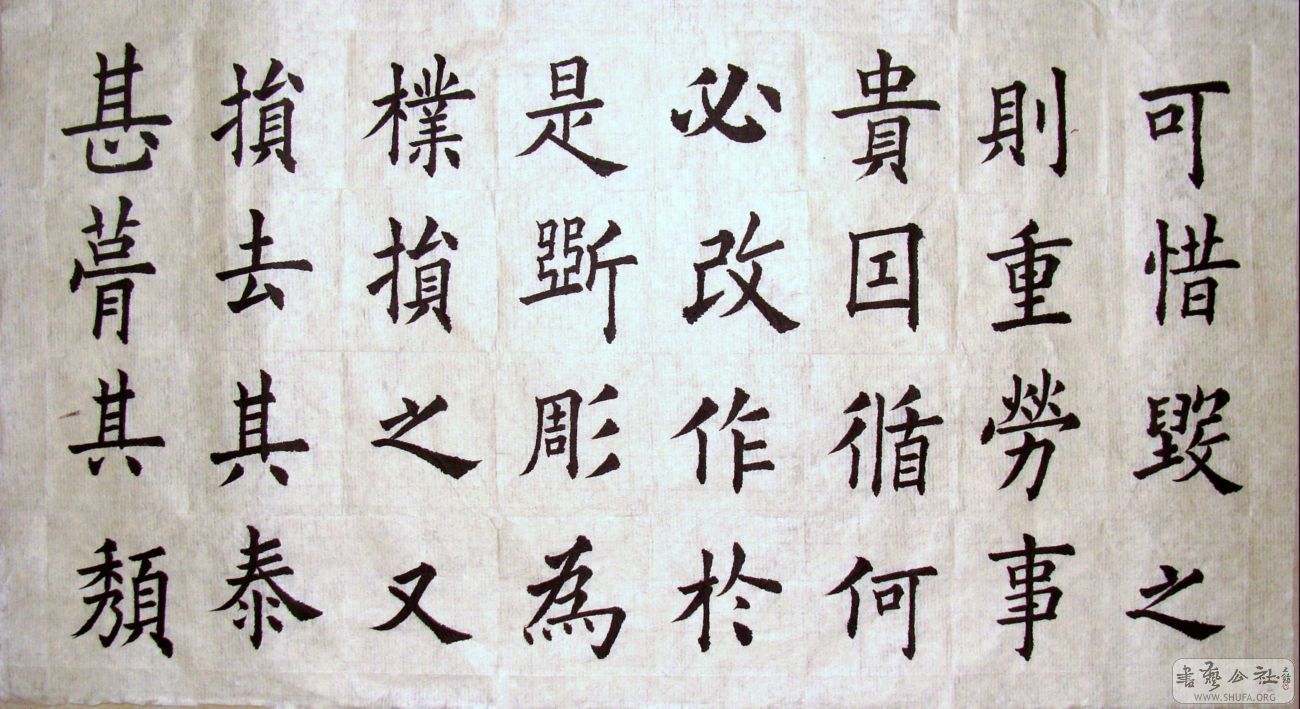 可惜毀之
則重勞事
貴囙循何
必改作於
是斵彫為
樸損之又
損去其泰
甚葺其頽
書藝公社
WWW.SHUFA.ORG